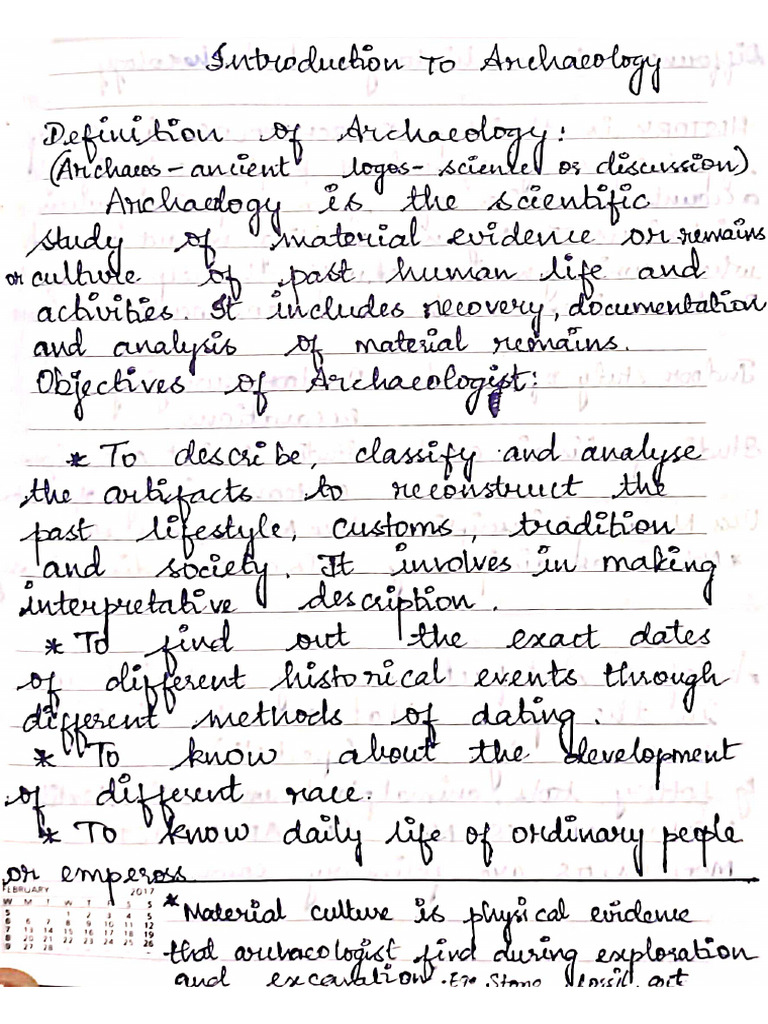 Introduction To Archaeology
Definition of Archaeology:
(Archaeos - ancient logos - science or discussion)
Archaeology is the scientific
study of material evidence or remains
or culture of past human life and
activities. It includes recovery, documentation
and analysis of material remains.
Objectives of Archaeologist:
* To describe, classify and analyse
the artifacts to reconstruct the
past lifestyle, customs, tradition
and society. It involves in making
interpretative description.
* To find out the exact dates
of different historical events through
different methods of dating.
* To know about the development
of different race.
* To know daily life of ordinary people
or emperors
FEBRUARY 2017
W M T W T F S S
5 1 2 3 4 5
6 6 7 8 9 10 11 12
7 13 14 15 16 17 18 19
8 20 21 22 23 24 25 26
9 27 28
* Material culture is physical evidence
that archaeologist find during exploration
and excavation. Eg. Stone, fossil, art